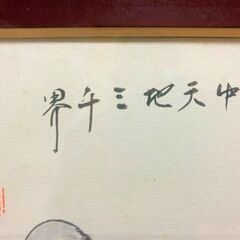 中天地三千界